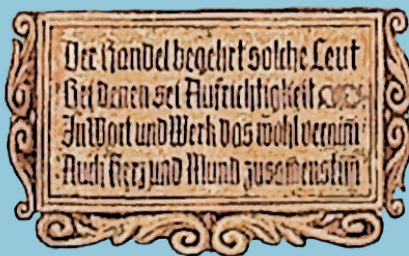 Der Handel begehrt solche Leut
Bei denen sei Aufrichtigkeit
In Wort und Werk das wohl vernim
Auch Herz und Mund zusamenstim